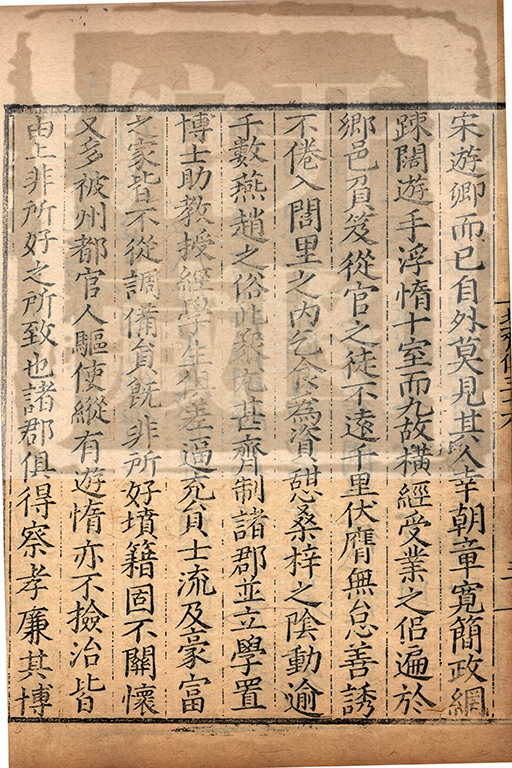 宋遊卿而已自外莫見其人幸朝章寛簡政網
踈闊遊手浮惰十室而九故橫經受業之侣遍於
鄉邑負笈從官之徒不遠千里伏膺無怠善誘
不倦入閭里之内乞食為資憇桑梓之陰動逾
千數燕趙之俗此衆尤甚齊制諸郡並立學置
博士助教授經學生俱差逼充貟士流及豪富
之家皆不從調備貟旣非所好墳籍固不關懷
又多被州都官人驅使縱有遊惰亦不撿治皆
由上非所好之所致也諸郡俱得察孝廉其博